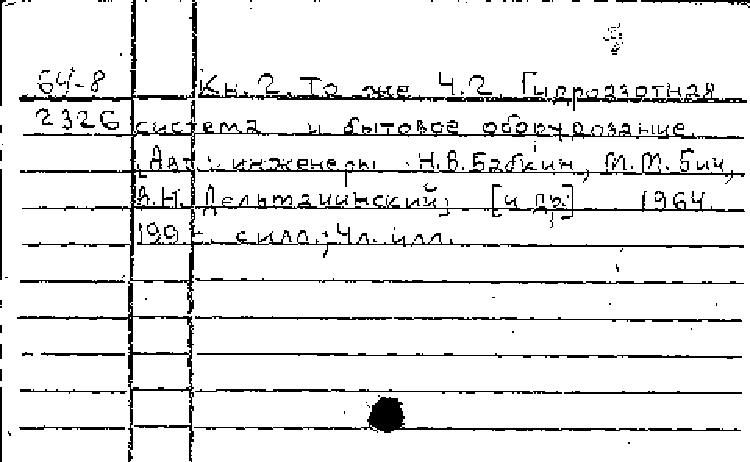 64-8 Кн. 2. То же Ч.2. Гидроазотная
2326 система и бытовое оборудование.
[Авт.: инженеры Н.В. Бабкин, М.М. Бич,
А.Н. [и др.] 1964
199 с. ; 4 л. илл.